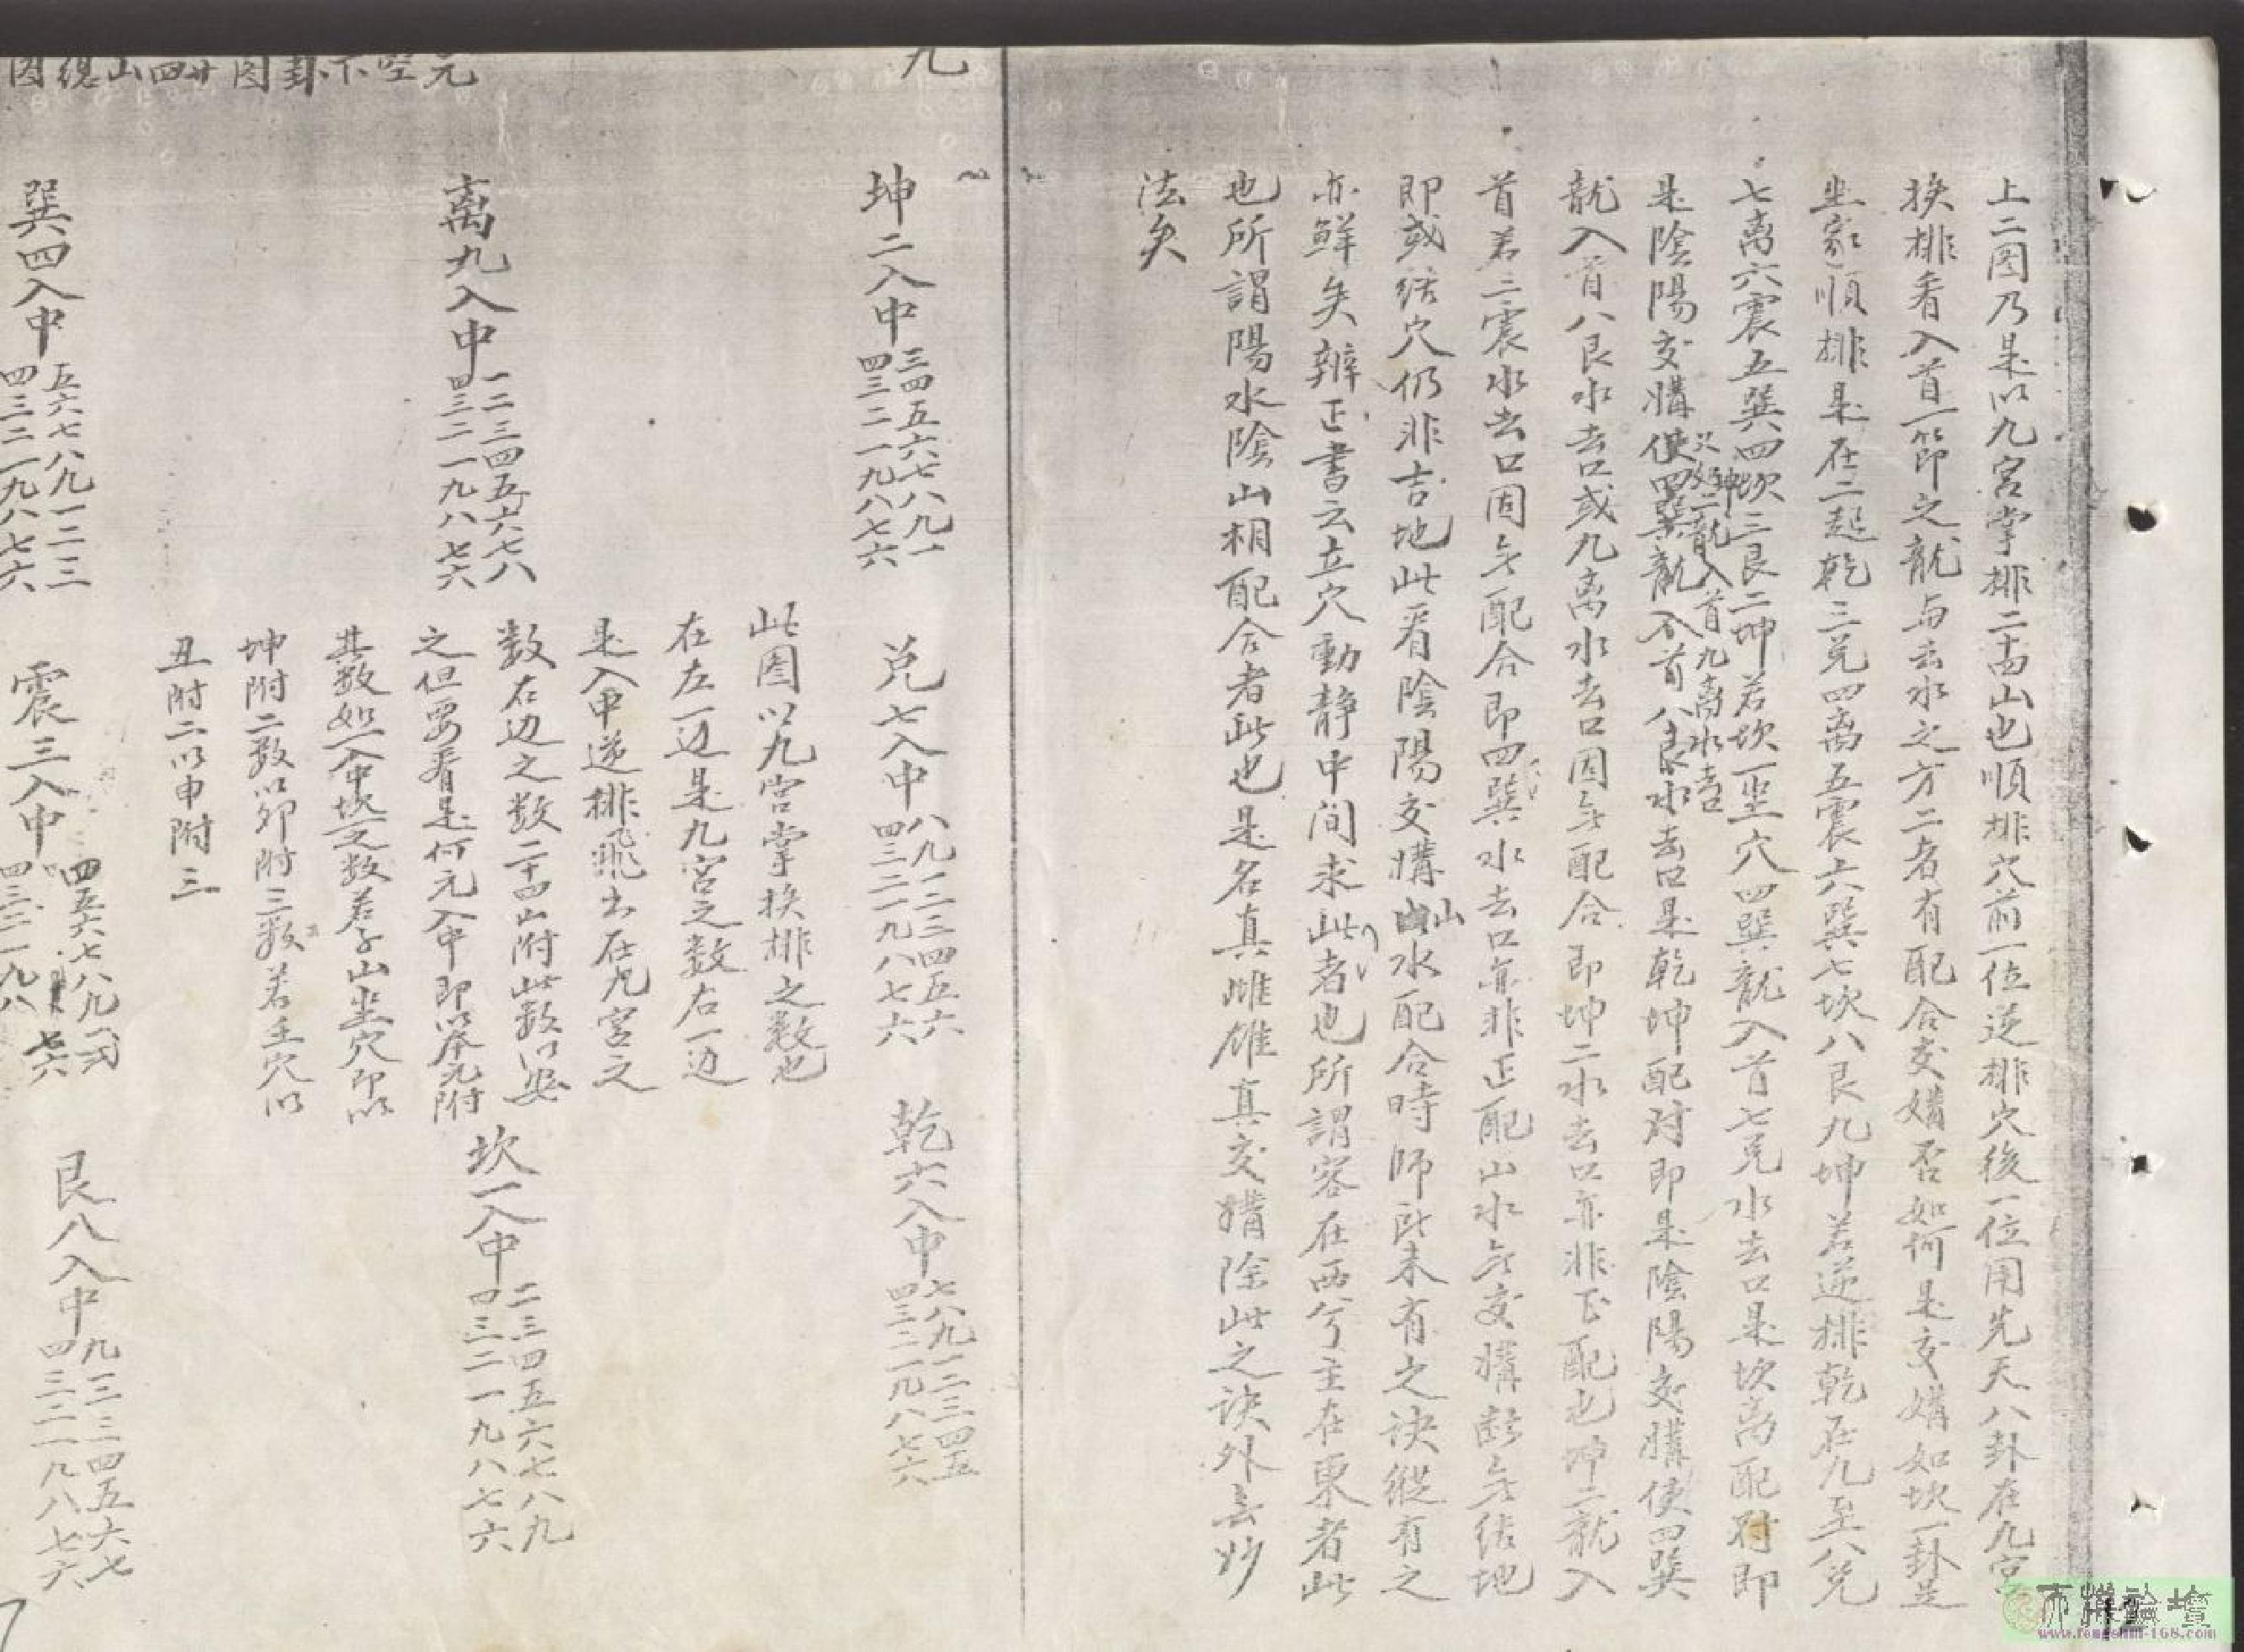 上二图乃是以九宫掌排二十四山也順排穴前一位逆排穴後一位用先天八卦在九宫
换排看入首一節之龍与去水之方二者有配合交媾否如何是交媾如坎一卦是
坐家順排是在二起乾三兑四离五震六巽七坎八艮九坤若逆排乾在九至八兑
七离六震五巽四坎三艮二坤若坎一坐穴四巽龍入首七兑水去口是坎离配对即
是陰陽交媾使四巽龍入首八艮水去口是乾坤配对即是陰陽交媾使四巽
又如坤二龍入首九离水去口
龍入首八艮水去口或九离水去口固无配合即坤二水去口亦非正配也坤二龍入
首若三震水去口固无配合即四巽水去口亦非正配山水无交媾断无结地
即或结穴仍非吉地此看陰陽交媾山水配合時師所未有之诀縱有之
亦鲜矣辨正書云立穴動静中间求此者也所謂客在西兮主在東者此
也所謂陽水陰山相配合者此也是名真雌雄真交媾除此之诀外无妙
法矣
九
元空下卦图廿四山總图
坤二入中
三四五六七八九一
四三二一九八七六
兑七入中
八九一二三四五六
四三二一九八七六
乾六入中
七八九一二三四五
四三二一九八七六
此图以九宫掌换排之数也
在左一边是九宫之数右一边
是入中逆排飛出在九宫之
数右边之数二十四山附此数以安
之但要看是何元入中即以本元附
其数如一入中坎一之数若子山坐穴即以
坤附二数以卯附三数若壬穴以
丑附二以申附三
离九入中
一二三四五六七八
四三二一九八七六
坎一入中
二三四五六七八九
四三二一九八七六
巽四入中
五六七八九一二三
四三二一九八七六
震三入中
四五六七八九一
四三二一九八七六
艮八入中
九一二三四五六七
四三二一九八七六
www.fengshui-168.com